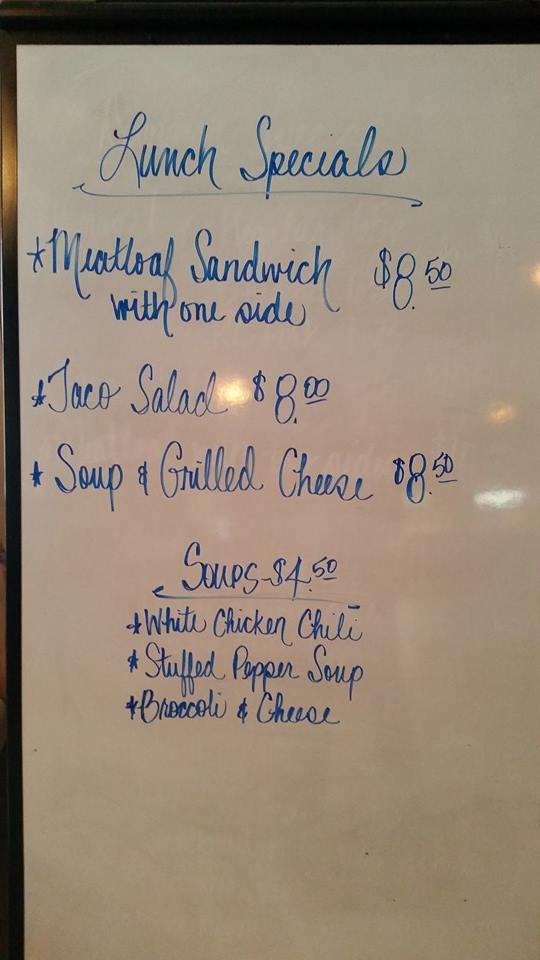 Lunch Specials
*Meatloaf Sandwich $8.50
with one side
*Taco Salad $8.00
*Soup & Grilled Cheese $8.50
Soups-$4.50
*White Chicken Chili
*Stuffed Pepper Soup
*Broccoli & Cheese